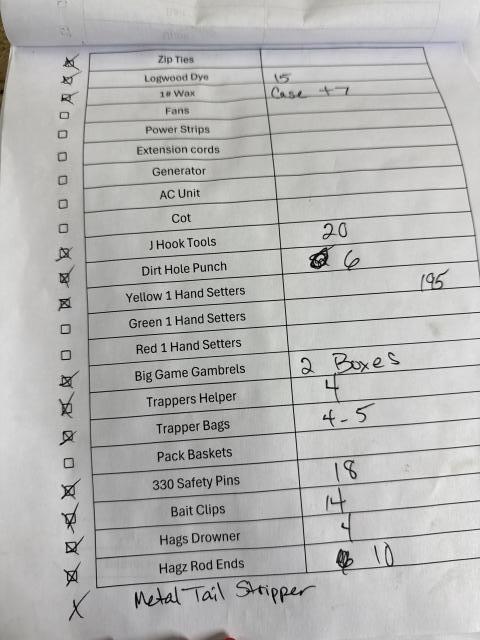 Zip Ties
Logwood Dye 15
1# Wax Case +7
Fans
Power Strips
Extension cords
Generator
AC Unit
Cot
J Hook Tools 20
Dirt Hole Punch 6
Yellow 1 Hand Setters 195
Green 1 Hand Setters
Red 1 Hand Setters
Big Game Gambrels 2 Boxes
Trappers Helper 4
Trapper Bags 4-5
Pack Baskets
330 Safety Pins 18
Bait Clips 14
Hags Drowner 4
Hagz Rod Ends 10
X Metal Tail Stripper